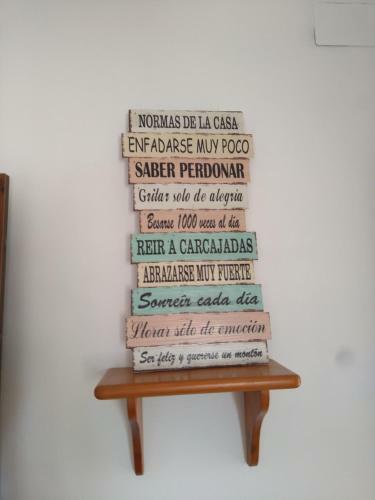 NORMAS DE LA CASA
ENFADARSE MUY POCO
SABER PERDONAR
Gritar solo de alegria
Besarse 1000 veces al dia
REIR A CARCAJADAS
ABRAZARSE MUY FUERTE
Sonreír cada día
Llorar sólo de emoción
Ser feliz y quererse un montón